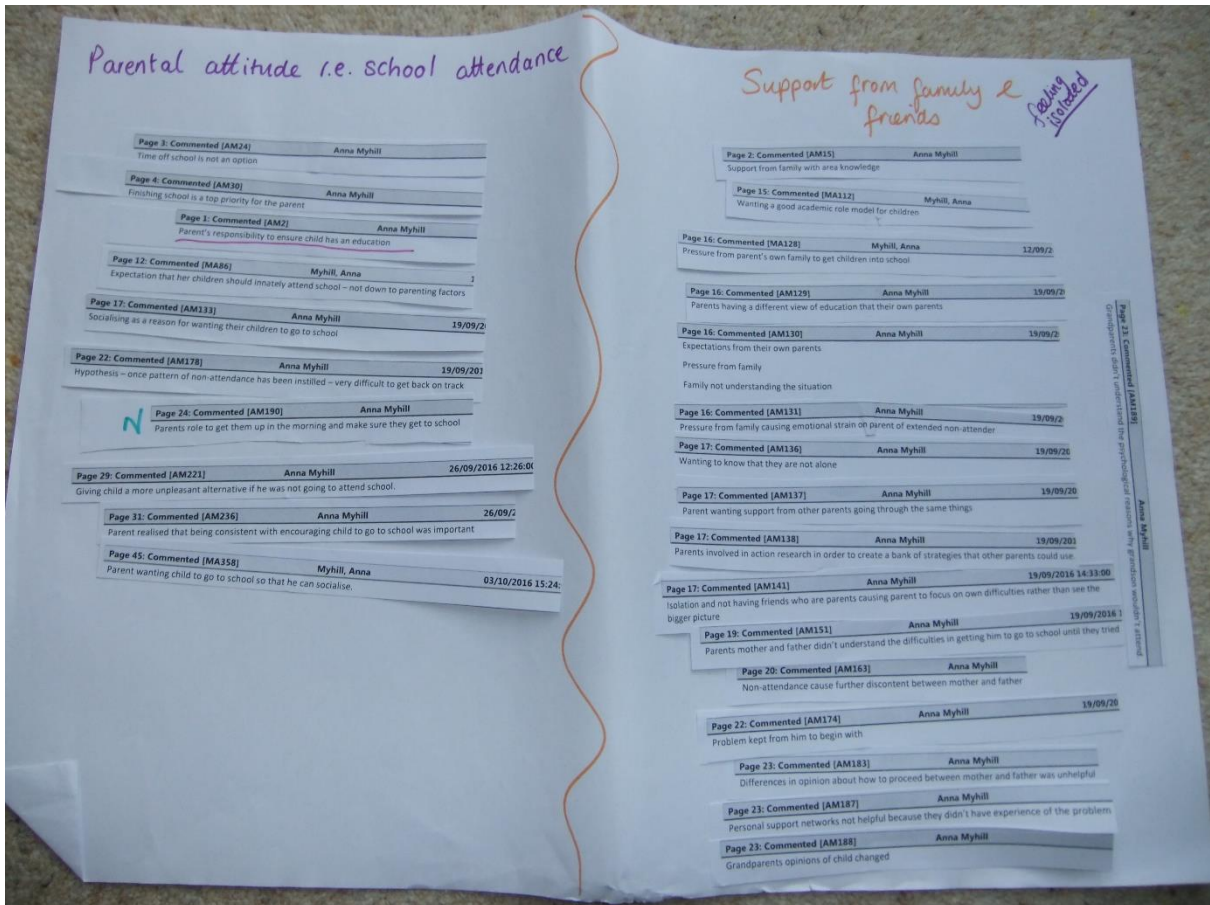 Parental attitude i.e. school attendance
Page 3: Commented [AM24] Anna Myhill
Time off school is not an option
Page 4: Commented [AM30] Anna Myhill
Finishing school is a top priority for the parent
Page 1: Commented [AM2] Anna Myhill
Parent's responsibility to ensure child has an education
Page 12: Commented [MA86] Myhill, Anna 1
Expectation that her children should innately attend school – not down to parenting factors
Page 17: Commented [AM133] Anna Myhill 19/09/20
Socialising as a reason for wanting their children to go to school
Page 22: Commented [AM178] Anna Myhill 19/09/201
Hypothesis – once pattern of non-attendance has been instilled – very difficult to get back on track
N
Page 24: Commented [AM190] Anna Myhill
Parents role to get them up in the morning and make sure they get to school
Page 29: Commented [AM221] Anna Myhill 26/09/2016 12:26:00
Giving child a more unpleasant alternative if he was not going to attend school.
Page 31: Commented [AM236] Anna Myhill 26/09/2
Parent realised that being consistent with encouraging child to go to school was important
Page 45: Commented [MA358] Myhill, Anna 03/10/2016 15:24:
Parent wanting child to go to school so that he can socialise.
Support from family &
friends
feeling
isolated
Page 2: Commented [AM15] Anna Myhill
Support from family with area knowledge
Page 15: Commented [MA112] Myhill, Anna
Wanting a good academic role model for children
Page 16: Commented [MA128] Myhill, Anna 12/09/2
Pressure from parent's own family to get children into school
Page 16: Commented [AM129] Anna Myhill 19/09/2
Parents having a different view of education that their own parents
Page 16: Commented [AM130] Anna Myhill 19/09/2
Expectations from their own parents
Pressure from family
Family not understanding the situation
Page 16: Commented [AM131] Anna Myhill 19/09/2
Pressure from family causing emotional strain on parent of extended non-attender
Page 17: Commented [AM136] Anna Myhill 19/09/20
Wanting to know that they are not alone
Page 17: Commented [AM137] Anna Myhill 19/09/20
Parent wanting support from other parents going through the same things
Page 17: Commented [AM138] Anna Myhill 19/09/201
Parents involved in action research in order to create a bank of strategies that other parents could use
Page 17: Commented [AM141] Anna Myhill 19/09/2016 14:33:00
Isolation and not having friends who are parents causing parent to focus on own difficulties rather than see the
bigger picture
Page 19: Commented [AM151] Anna Myhill 19/09/2016 1
Parents mother and father didn't understand the difficulties in getting him to go to school until they tried
Page 20: Commented [AM163] Anna Myhill
Non-attendance cause further discontent between mother and father
Page 22: Commented [AM174] Anna Myhill 19/09/20
Problem kept from him to begin with
Page 23: Commented [AM183] Anna Myhill
Differences in opinion about how to proceed between mother and father was unhelpful
Page 23: Commented [AM187] Anna Myhill
Personal support networks not helpful because they didn't have experience of the problem
Page 23: Commented [AM188] Anna Myhill
Grandparents opinions of child changed
Page 23: Commented [AM189] Anna Myhill
Grandparents didn't understand the psychological reasons why grandson wouldn't attend